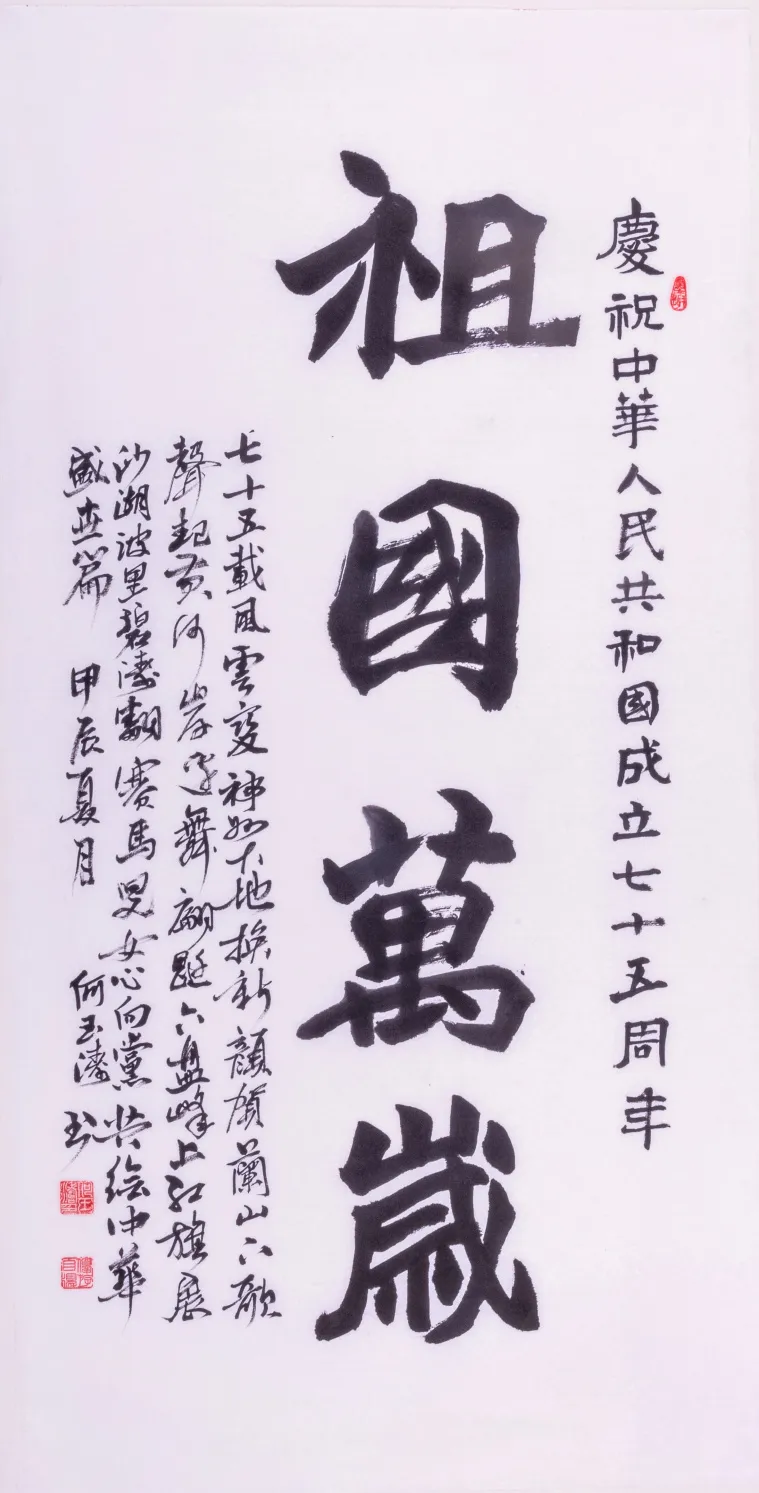 慶祝中華人民共和國成立七十五周年
祖國萬歲
七十五載風雲變神州大地換新顏賀蘭山下歌
聲起黃河岸邊舞翩躚六盤峰上紅旗展
沙湖波里碧濤翻賽馬兒女心向黨共繪中華
盛世篇 甲辰夏月 何玉濤書